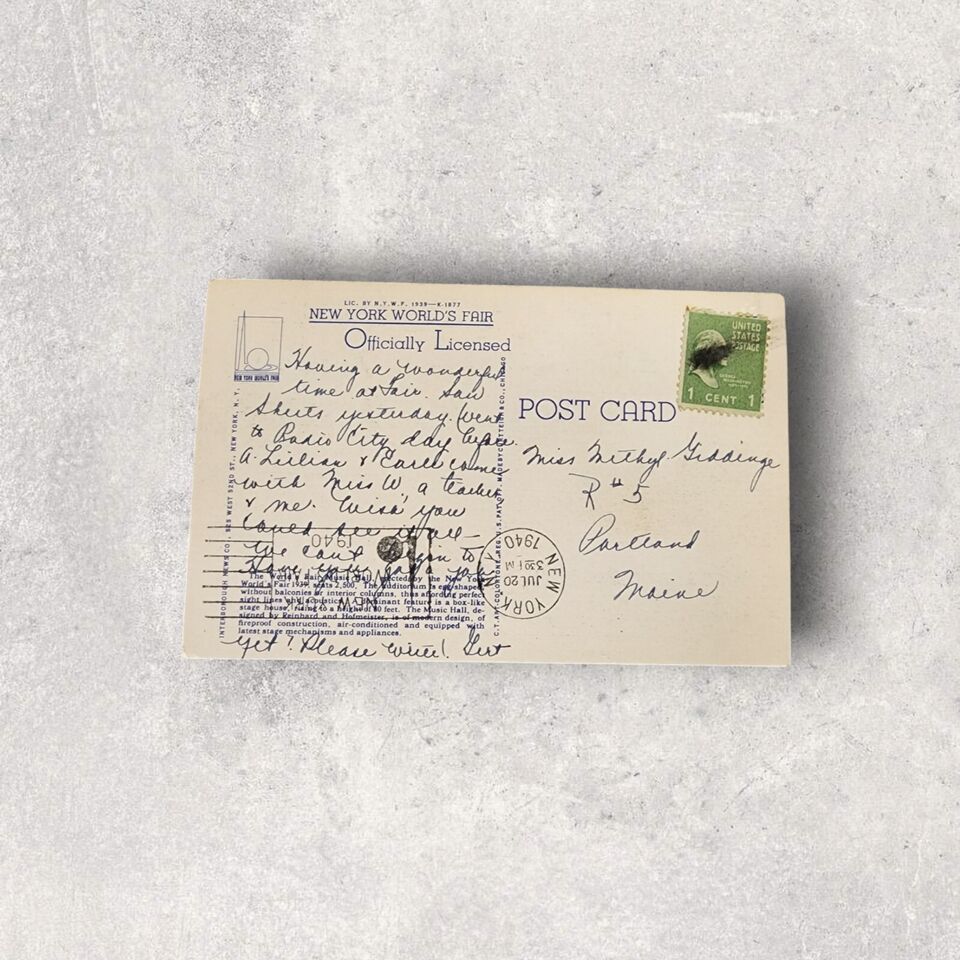 LIC. BY N.Y.W.F. 1939—K-1877
NEW YORK WORLD'S FAIR
Officially Licensed
NEW YORK WORLD'S FAIR
Having a wonderful
time at Fair. Saw
yesterday. Went
to Radio City day before.
A. Lillian & came
with Miss W, a teacher
& me. Wish you
could see it all—
We can't begin to
Have you got a job
The World's Fair Music Hall, erected by the New York
World's Fair 1939, seats 2,500. The auditorium is egg-shaped
without balconies or interior columns, thus affording perfect
sight lines and acoustics. Dominant feature is a box-like
stage house, rising to a height of 80 feet. The Music Hall, de-
signed by Reinhard and Hofmeister, is of modern design, of
fireproof construction, air-conditioned and equipped with
latest stage mechanisms and appliances.
yet? Please write! Gert
INTERBOROUGH NEWS CO., 525 WEST 52ND ST., NEW YORK, N. Y.
C.T. ART-COLORTONE REG. U.S. PAT. OFF. MADE BY CURT TEICH & CO., CHICAGO
POST CARD
UNITED
STATES
POSTAGE
GEORGE
WASHINGTON
1 CENT 1
Miss Giddings
R #5
Portland
Maine
NEW YORK
JUL 20
3 30 PM
1940
NEW YORK
1940